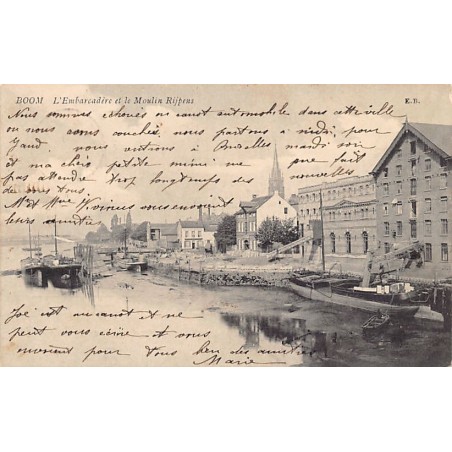 BOOM L'Embarcadère et le Moulin Rijpens
E. B.
Nous sommes échoués en canot automobile dans cette ville
ou nous avons couchés, nous partons à midi pour
Gand, nous rentrons à Bruxelles mardi soir
et ma chère petite mimi ne fait
pas attendre trop longtemps des nouvelles
de vous tous
Mr et Mme vous envoient
leurs amitiés
Joe est au canot et ne
peut vous écrire et nous
envoient pour tous bien des amitiés
Marie